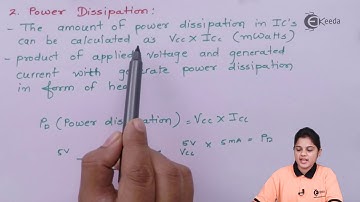 2. Power Dissipation:
- The amount of power dissipation in IC's
can be calculated as Vcc x Icc (mWatts)
- product of applied voltage and generated
current with generate power dissipation
in form of hea
PD (Power dissipation) = Vcc x Icc
5V
5V x 5mA = PD
Vcc
Ekeeda